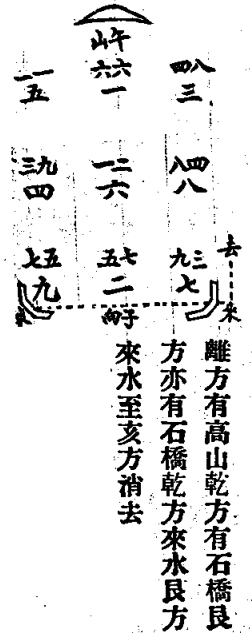 午山
一一 六六 四八
五 一 三
三九 一二 八四
四 六 八
七五 五七 九三
九 二 七
去
來
來
子向
離方有高山乾方有石橋艮
方亦有石橋乾方來水艮方
來水至亥方消去